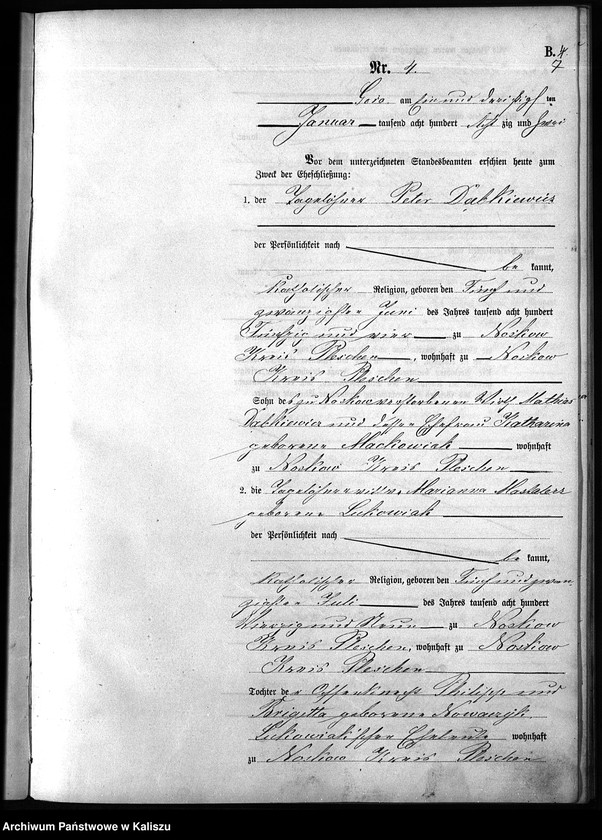 B. 4.
7
Nr. 4.
Gora, am ein und dreißigsten
Januar tausend acht hundert acht zig und zwei
Vor dem unterzeichneten Standesbeamten erschien heute zum
Zweck der Eheschließung:
1. der Tagelöhner Peter Dąbkiewicz
der Persönlichkeit nach
be kannt,
katholischer Religion, geboren den fünf und
zwanzigsten Juni des Jahres tausend acht hundert
fünfzig und vier zu Noskow
Kreis Pleschen, wohnhaft zu Noskow
Kreis Pleschen
Sohn des zu Noskow verstorbenen Wirth Mathias
Dąbkiewicz und dessen Ehefrau Katharina
geborene Maćkowiak wohnhaft
zu Noskow Kreis Pleschen
2. die Tagelöhnerwittwe Marianna
geborene Lukowiak
der Persönlichkeit nach
be kannt,
katholischer Religion, geboren den fünf und zwan
zigsten Juli des Jahres tausend acht hundert
vierzig und neun zu Noskow
Kreis Pleschen, wohnhaft zu Noskow
Kreis Pleschen
Tochter der Ochsenknecht Philipp und
Brigitta geborene Nowaczyk
Lukowiakschen Eheleute wohnhaft
zu Noskow Kreis Pleschen
Archiwum Państwowe w Kaliszu